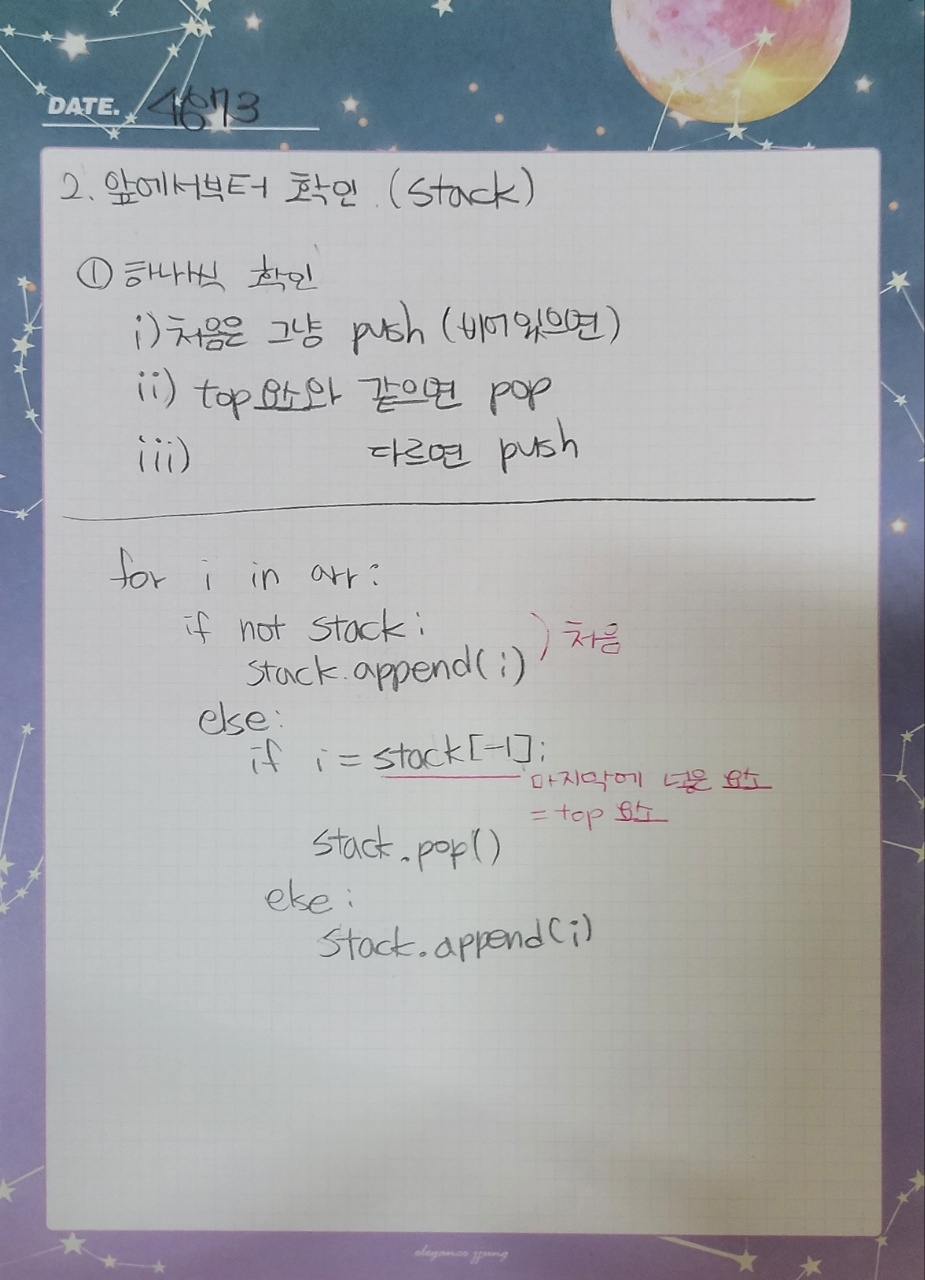 DATE. 4673
2. 앞에서부터 확인 (stack)
① 하나씩 확인
i) 처음은 그냥 push (비어있으면)
ii) top요소와 같으면 pop
iii) 다르면 push
for i in arr:
if not stack:
stack.append(i)
) 처음
else:
if i = stack[-1]:
마지막에 넣은 요소
= top 요소
stack.pop()
else:
stack.append(i)